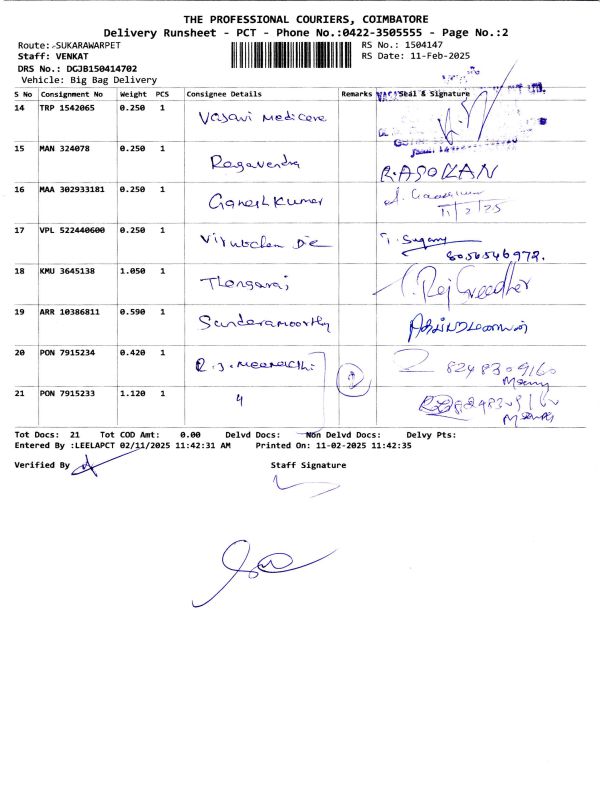 THE PROFESSIONAL COURIERS, COIMBATORE
Delivery Runsheet - PCT - Phone No.:0422-3505555 - Page No.:2
Route:-SUKARAWARPET
RS No.: 1504147
Staff: VENKAT
RS Date: 11-Feb-2025
DRS No.: DGJB150414702
Vehicle: Big Bag Delivery
S No Consignment No Weight PCS Consignee Details Remarks Seal & Signature
14 TRP 1542065 0.250 1 Vasavi Medicare
15 MAN 324078 0.250 1 Ragavendra R.ASOKAN
16 MAA 302933181 0.250 1 Ganesh Kumar
11/2/25
17 VPL 522440600 0.250 1 T. Sugany
8056546972.
18 KMU 3645138 1.050 1 Thangaraj
19 ARR 10386811 0.590 1 Sundaramoorthy
20 PON 7915234 0.420 1 R.J. Meenachi 8248309160
21 PON 7915233 1.120 1 4
Tot Docs: 21 Tot COD Amt: 0.00 Delvd Docs: Non Delvd Docs: Delvy Pts:
Entered By :LEELAPCT 02/11/2025 11:42:31 AM Printed On: 11-02-2025 11:42:35
Verified By Staff Signature